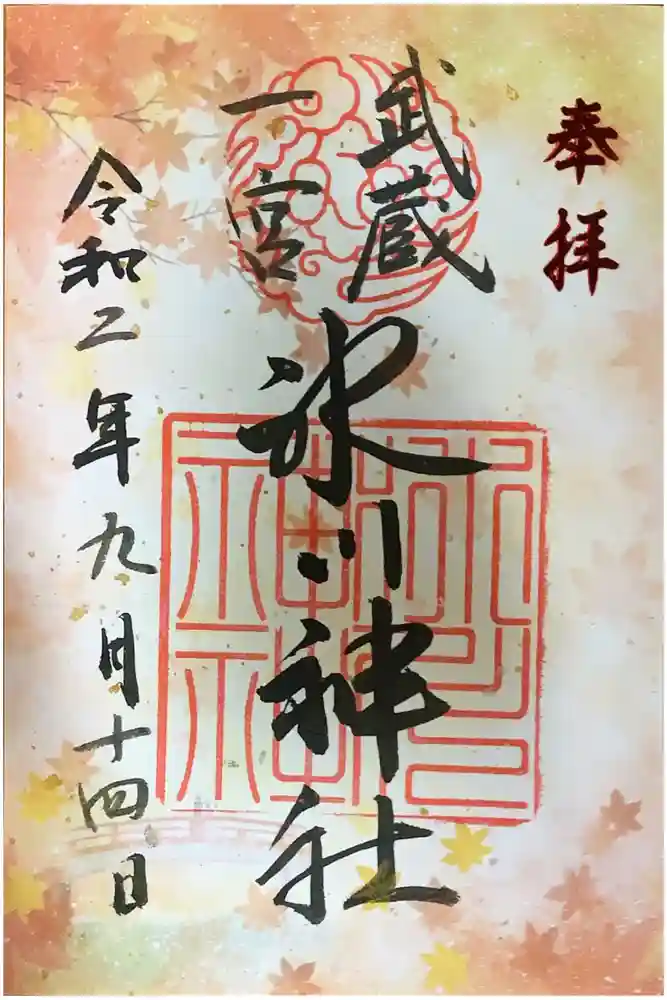 奉拝
武蔵
一宮
氷川神社
令和二年九月十四日